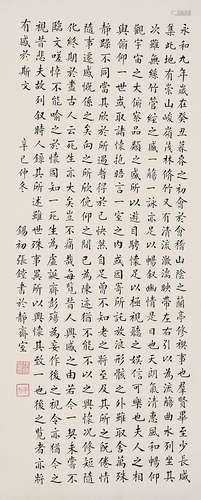 永和九年歲在癸丑暮春之初會於會稽山陰之蘭亭修禊事也羣賢畢至少長咸
集此地有崇山峻嶺茂林修竹又有清流激湍映帶左右引以為流觴曲水列坐其
次雖無絲竹管絃之盛一觴一詠亦足以暢敘幽情是日也天朗氣清惠風和暢仰
觀宇宙之大俯察品類之盛所以遊目騁懷足以極視聽之娛信可樂也夫人之相
與俯仰一世或取諸懷抱晤言一室之內或因寄所託放浪形骸之外雖取舍萬殊
靜躁不同當其欣於所遇暫得於己快然自足曾不知老之將至及其所之既倦情
隨事遷感慨係之矣向之所欣俛仰之間已為陳迹猶不能不以之興懷況修短隨
化終期於盡古人云死生亦大矣豈不痛哉每覽昔人興感之由若合一契未嘗不
臨文嗟悼不能喻之於懷固知一死生為虛誕齊彭殤為妄作後之視今亦猶今之
視昔悲夫故列敘時人錄其所述雖世殊事異所以興懷其致一也後之覽者亦將
有感於斯文 辛巳仲冬 錫初張書於靜齋室